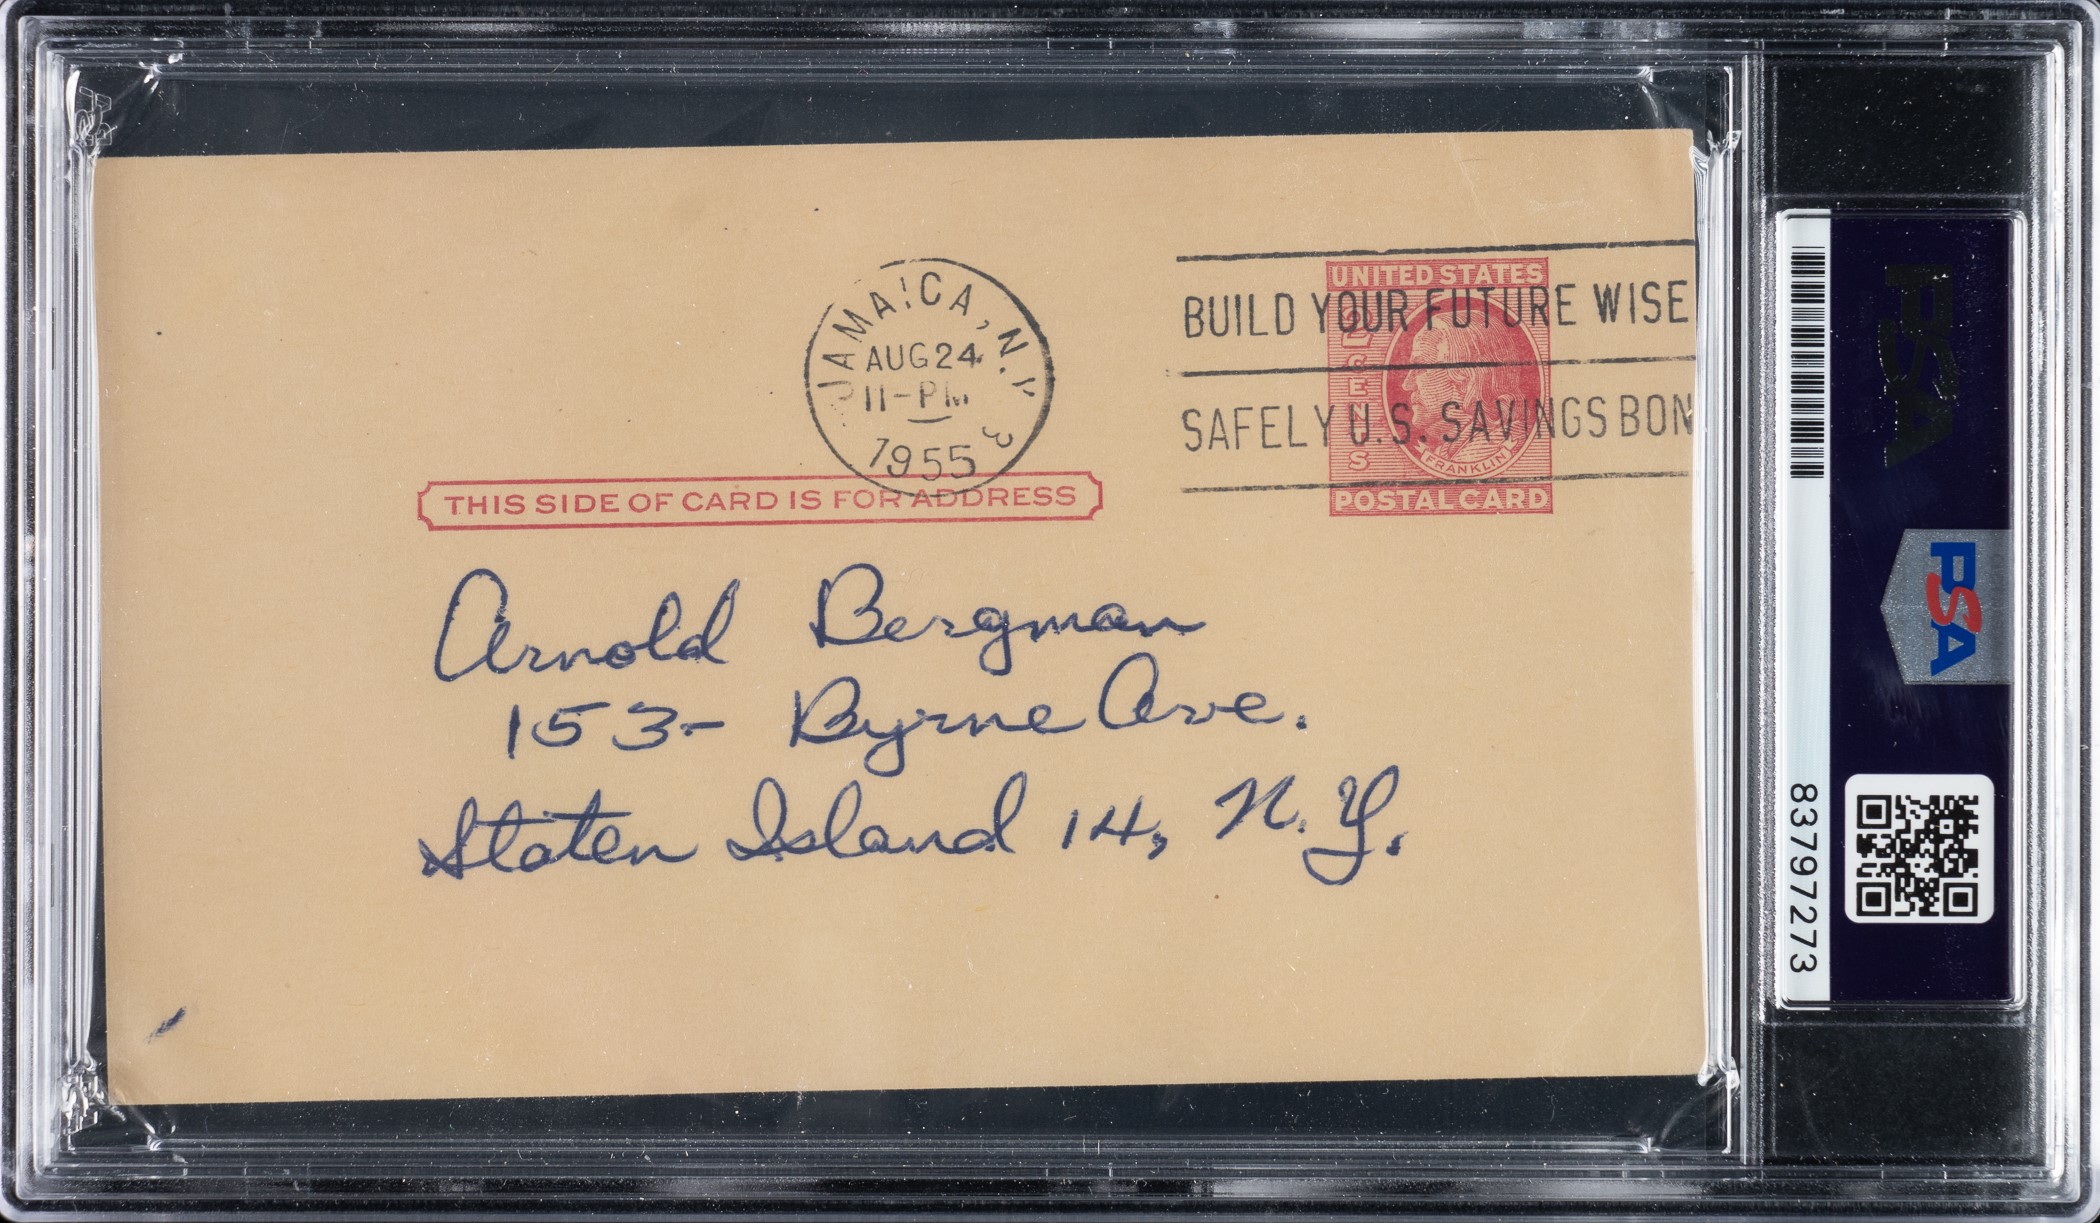 JAMAICA, N.Y.
AUG 24
11-PM
1955
3
BUILD YOUR FUTURE WISE
SAFELY U.S. SAVINGS BON
UNITED STATES
2 CENTS
FRANKLIN
POSTAL CARD
THIS SIDE OF CARD IS FOR ADDRESS
Arnold Bergman
153- Byrne Ave.
Staten Island 14, N.Y.
PSA
PSA
83797273